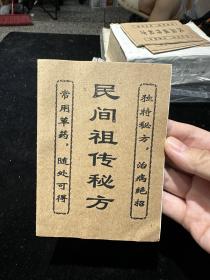 独特秘方，治病绝招
民间祖传秘方
常用草药，随处可得